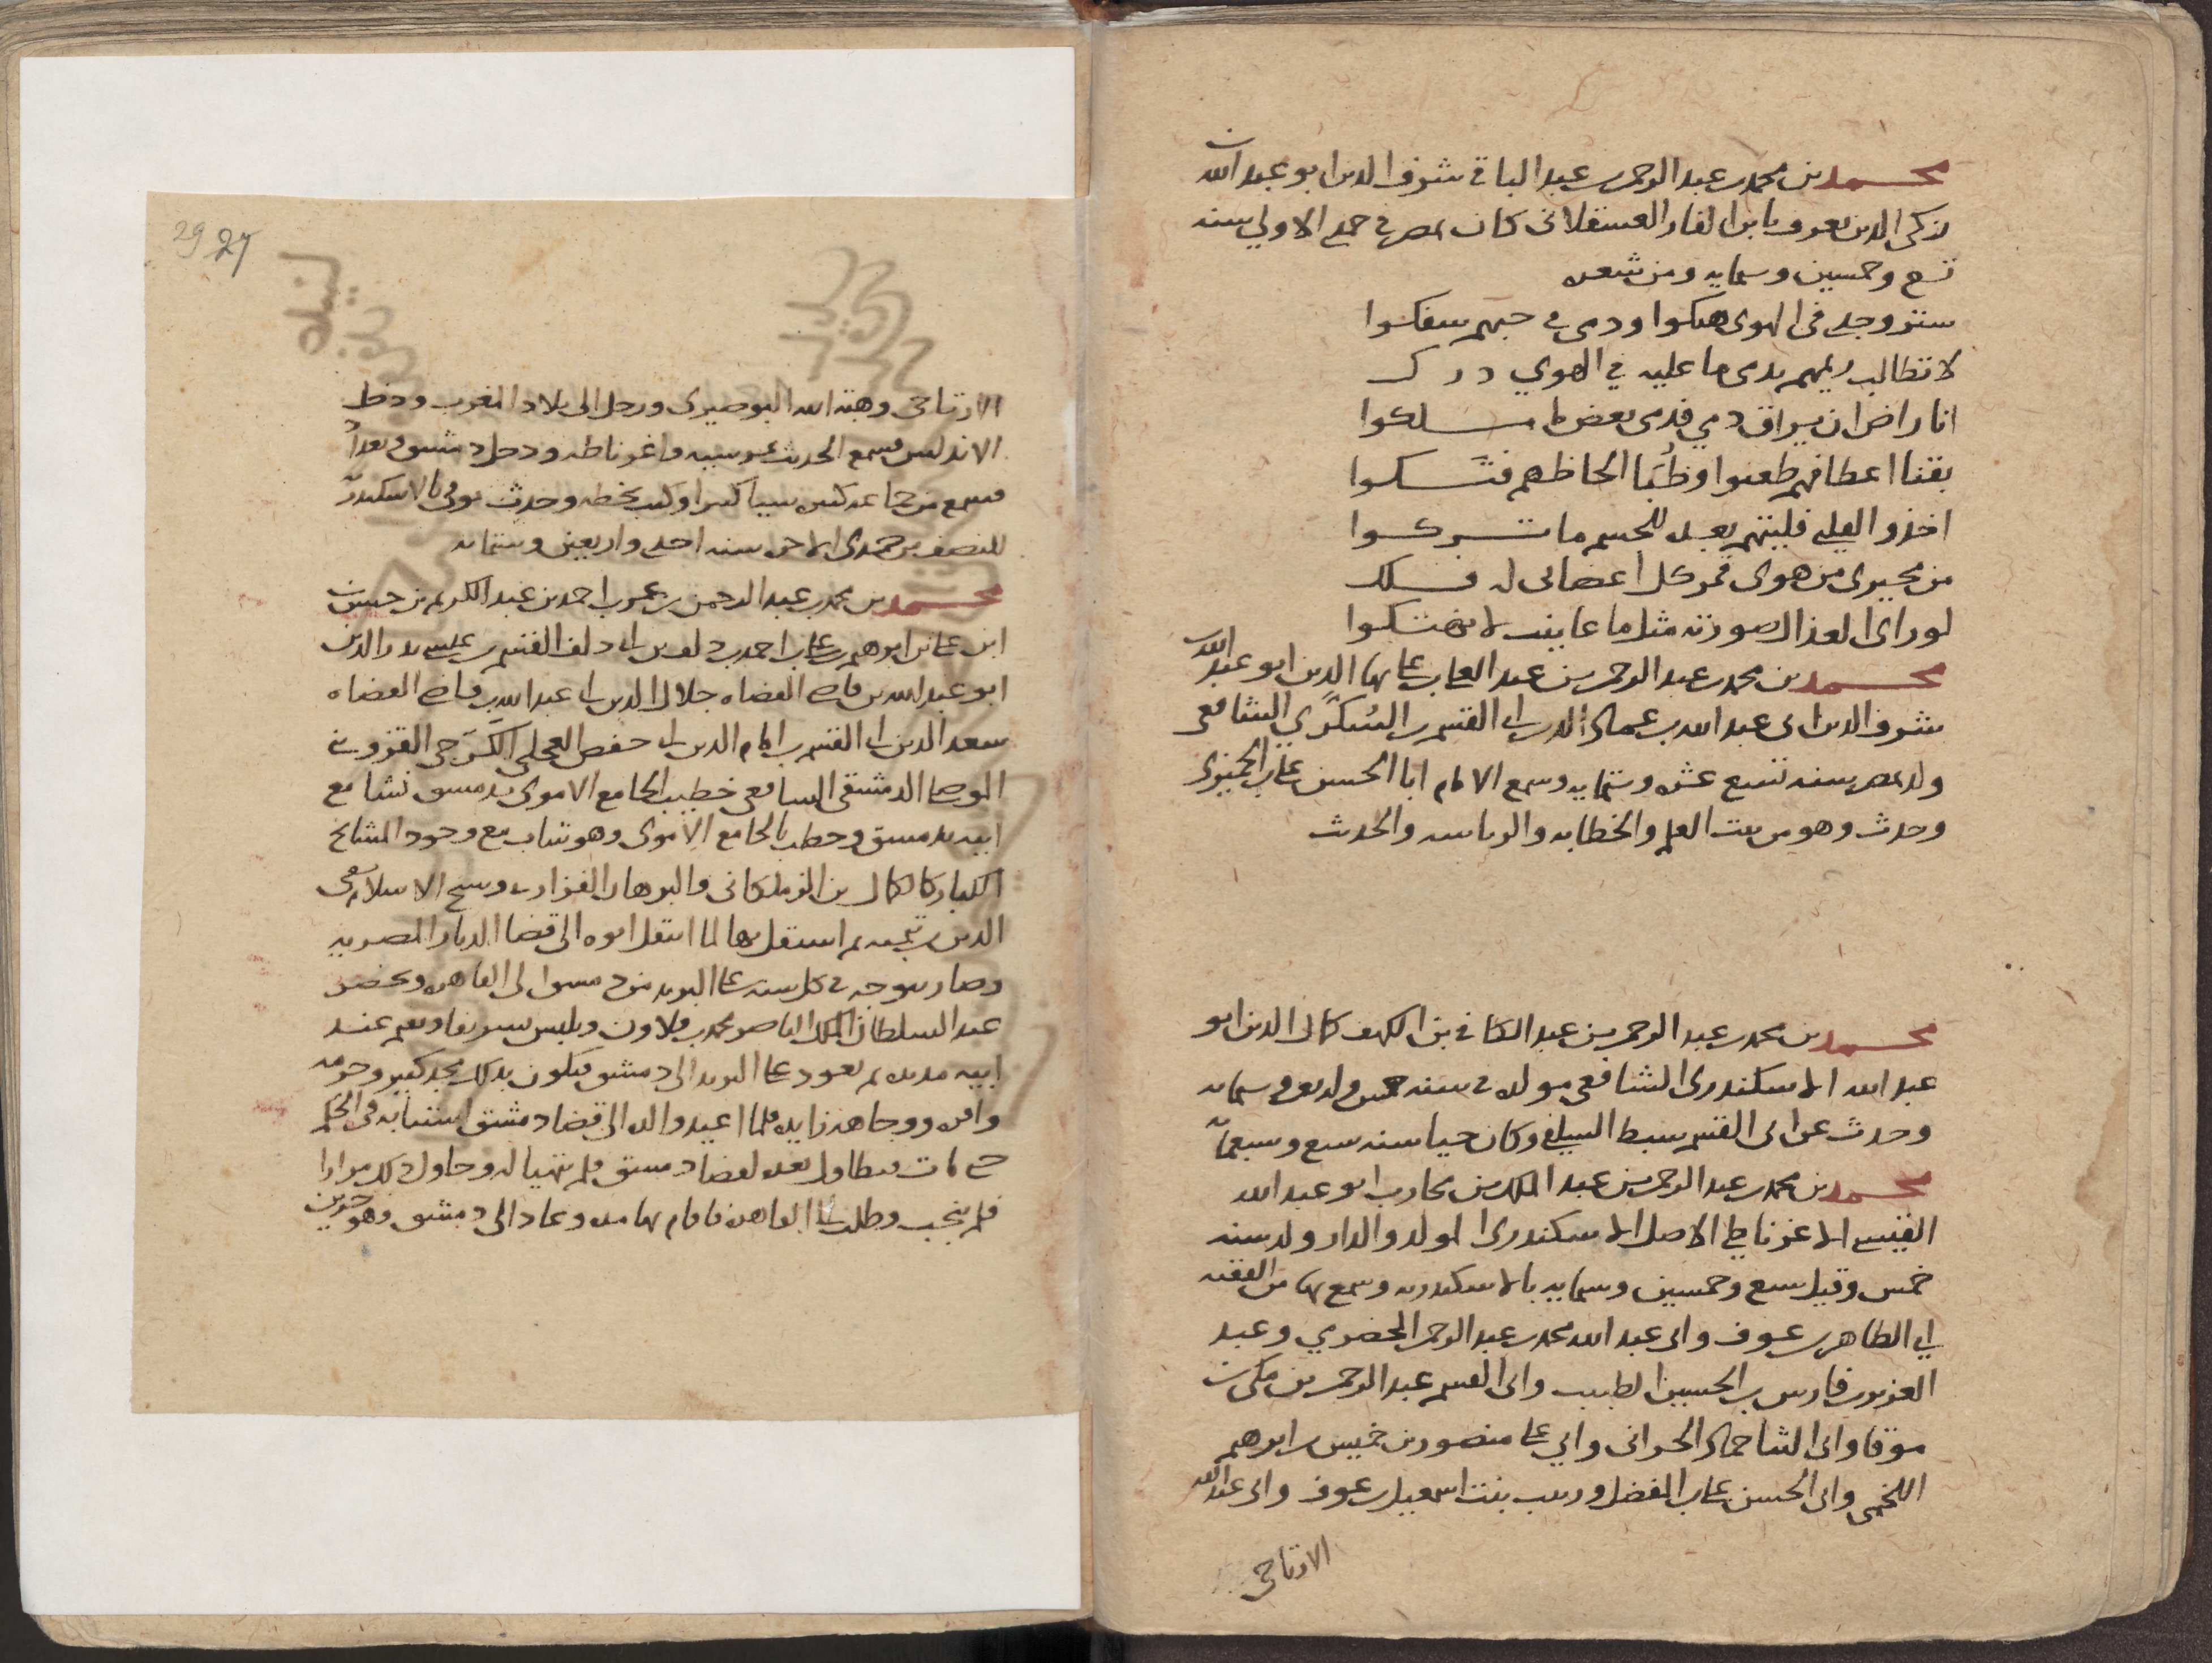 محمد بن محمد بن عبد الرحمن بن عبد الباقي شرف الدين ابو عبد الله بن
زكي الدين يعرف بابن الفار العسقلاني كان بمصر في جمدى الاولى سنه
تسع وخمسين وسمايه ومن شعره
ستر وجدي في الهوى هتكوا ودمي في حبهم سفكوا
لا تطالب ريمهم بدمي ما عليه في الهوي درك
انا راض ان يراق دمي فدمي بعض ما سلكوا
بقنا اعطافهم طعنوا وظُبَا الحاظهم فتسكوا
اخذوا القلب فليتهم بعده للجسم ما تركوا
من مجيري من هوى قمر كل اعضائى له فلك
لو راى العذال صورته مثل ما عاينت لانهتكوا
محمد بن محمد بن عبد الرحمن بن عبد العلي بن علي بها الدين ابو عبد الله
شرف الدين ابى عبد الله بن عماد الدين ابى القسم بن السُكَّري الشافعي
ولد بمصر سنه تسع عشره وستمايه وسمع الامام ابا الحسن علي بن الجميزى
وحدث وهو من بيت العلم والخطابه والرياسه والحديث
محمد بن محمد بن عبد الرحمن بن عبد الكافي بن الكهف كمال الدين ابو
عبد الله الاسكندرى الشافعي مولده في سنه خمس ولربعين وسمايه
وحدث عن ابى القسم سبط السلفي وكان حيا سنه سبع وسبعمائة
محمد بن محمد بن عبد الرحمن بن عبد الملك بن محارب ابو عبد الله
القيسي الاغرناطي الاصل الاسكندرى المولد والدار ولد سنه
خمس وقيل سبع وخمسين وسمايه بالاسكندريه وسمع بها من الفقيه
ابي الطاهر بن عوف وابى عبد الله محمد بن عبد الرحمن الحضرمي وعبد
العزيز بن فارس بن الحسين الطبيب وابى القسم عبد الرحمن بن مكي بن
موقا وابى الثنا حماد الحراني وابي علي منصور بن خميس بن ابرهيم
اللخمي وابى الحسن علي بن المفضل وزينب بنت اسمعيل بن عوف وابى عبد الله
الارتاحي
29 27
الارتاحى وهبه الله البوصيرى ورحل الى بلاد المغرب ودخل
الاندلس فسمع الحديث بمرسيه واغرناطه ودخل دمشق وبغداد
فسمع من جماعه كثيره شيا كثيرا وكتب بخطه وحدث توفى بالاسكندرية
للنصف من جمدى الاخره سنه احدى واربعين وستمايه
محمد بن محمد بن عبد الرحمن بن عمر بن احمد بن عبد الكريم بن حسن بن
ابن علي بن ابرهيم بن علي بن احمد بن دلف بن ابى دلف القسم بن عيسى بدر الدين
ابو عبد الله بن قاضى القضاه جلال الدين ابى عبد الله بن قاضى القضاه
سعد الدين ابى القسم بن امام الدين ابى حفص العجلى الكَرَجى القزويني
الموصلي الدمشقى الشافعي خطيب الجامع الاموى بدمشق نشا مع
ابيه بدمشق وخطب بالجامع الاموى وهو شاب مع وجود المشايخ
الكبار كالكمال بن الزملكانى والبرهان الفزارى وشيخ الاسلام تقى
الدين بن تيميه ثم استقل بها لما انتقل ابوه الى قضا الديار المصريه
وصار يتوجه في كل سنه على البريد من دمشق الى القاهره ويحضر
عند السلطان الملك الناصر محمد بن قلاون ويلبس تشريفا ويقيم عند
ابيه مده ثم يعود على البريد الى دمشق فيكون بذلك مجد كبير وحرمه
وافره ووجاهه زايده فلما اعيد والده الى قضا دمشق استنابه في الحكم
حتى مات فتطاول بعده لقضا دمشق فلم يتهيا له وحاول ذلك مرارا
فلم ينجب وطلب الى القاهره فاقام بها مده وعاد الى دمشق وهو حزين